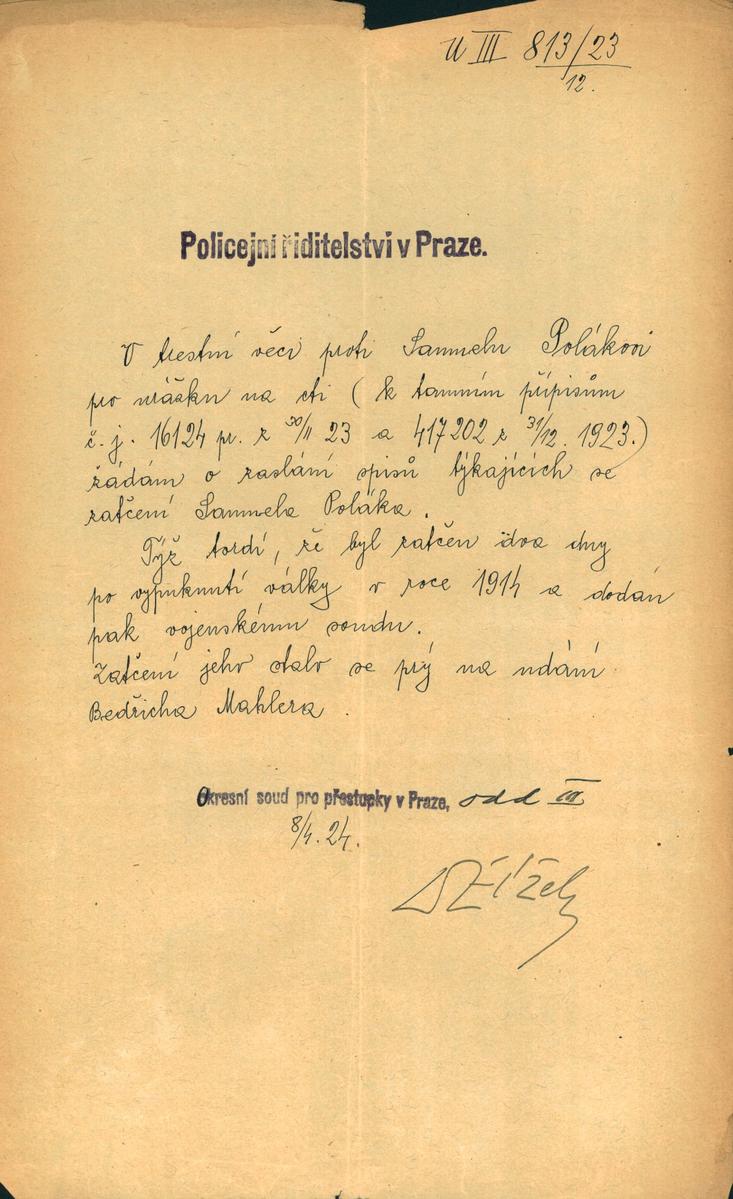 U III 813/23
12.
Policejní řiditelství v Praze.
V trestní věci proti Samuelu Polákovi
pro urážku na cti ( k tamním přípisům
č. j. 16124 pr. z 30/11 23 a 417202 z 31/12. 1923.)
žádám o zaslání spisů týkajících se
zatčení Samuela Poláka.
Týž tvrdí, že byl zatčen dva dny
po vypuknutí války v roce 1914 a dodán
pak vojenskému soudu.
Zatčení jeho stalo se prý na udání
Bedřicha Mahlera.
Okresní soud pro přestupky v Praze, odd III
8/4. 24.